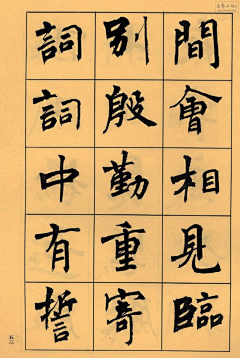 間會相見臨
別殷勤重寄
詞詞中有誓
五三